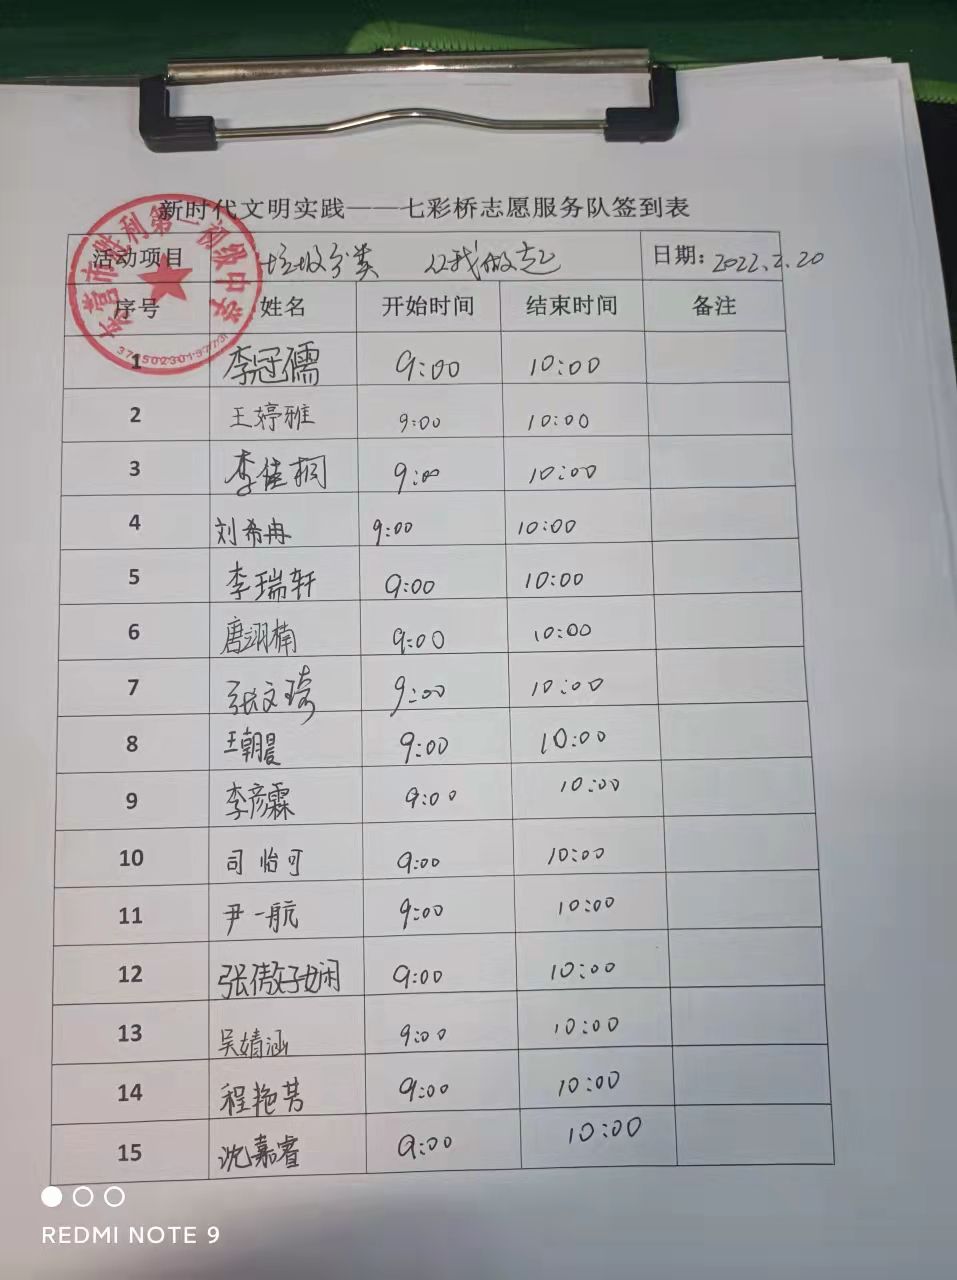 新时代文明实践——七彩桥志愿服务队签到表
活动项目 垃圾分类 从我做起 日期: 2022.2.20
序号 姓名 开始时间 结束时间 备注
1 李冠儒 9:00 10:00
2 王婷雅 9:00 10:00
3 李佳桐 9:00 10:00
4 刘希冉 9:00 10:00
5 李瑞轩 9:00 10:00
6 唐翊楠 9:00 10:00
7 张文琦 9:00 10:00
8 王朝晟 9:00 10:00
9 李彦霖 9:00 10:00
10 司怡可 9:00 10:00
11 尹一航 9:00 10:00
12 张傲好娴 9:00 10:00
13 吴婧涵 9:00 10:00
14 程艳芳 9:00 10:00
15 沈嘉睿 9:00 10:00
东营市胜利第一初级中学
REDMI NOTE 9